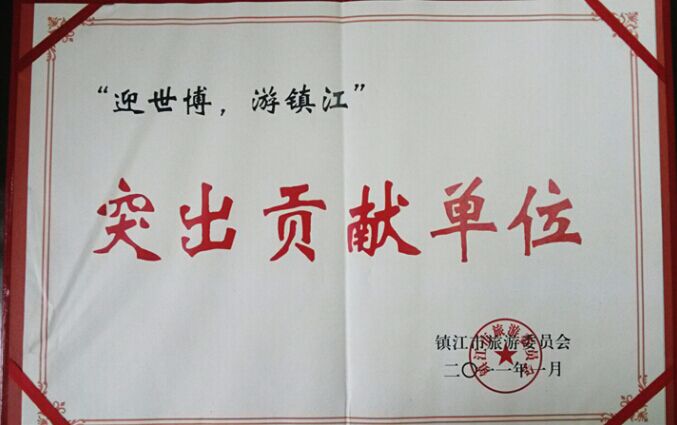 “迎世博，游镇江”
突出贡献单位
镇江市旅游委员会
二〇一一年一月
镇江市旅游委员会